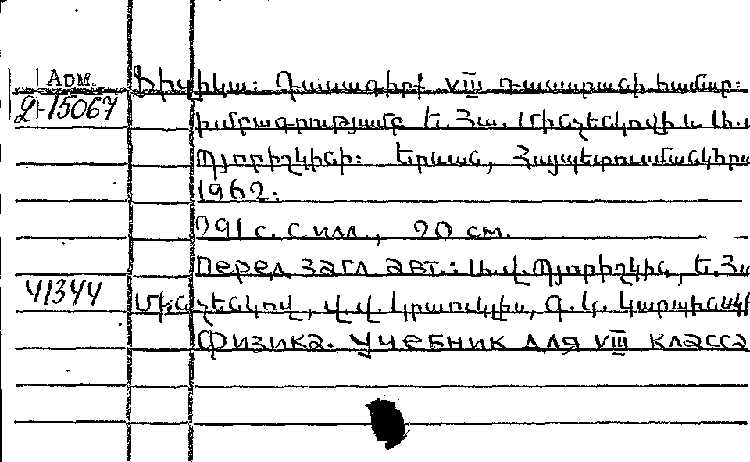 Арм.
2-15067
Ֆիզիկա: Դասագիրք VIII դասարանի համար:
խմբագրությամբ Ե. Հա. Մինչենկովի և Ա.
Պյորիշկինի: Երևան, Հայպետուսմանկհրատ
1962:
291 с. с илл., 20 см.
Перед загл авт.: Ա. Վ. Պյորիշկին, Ե. Հա
41344
Մինչենկով, Վ. Վ. Կրաուկլիս, Գ. Կ. Կարպինսկի
Физика. Учебник для VIII класса